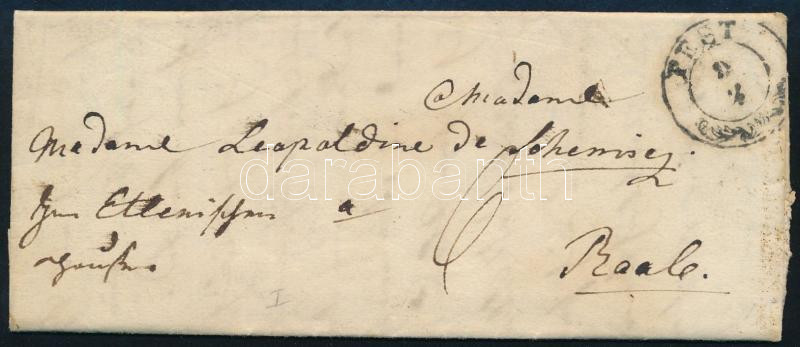 PEST
Madame
Madame Leopoldine de Schemisey.
Im Ettenischen a
Hause
Raab.
6
I
darabanth